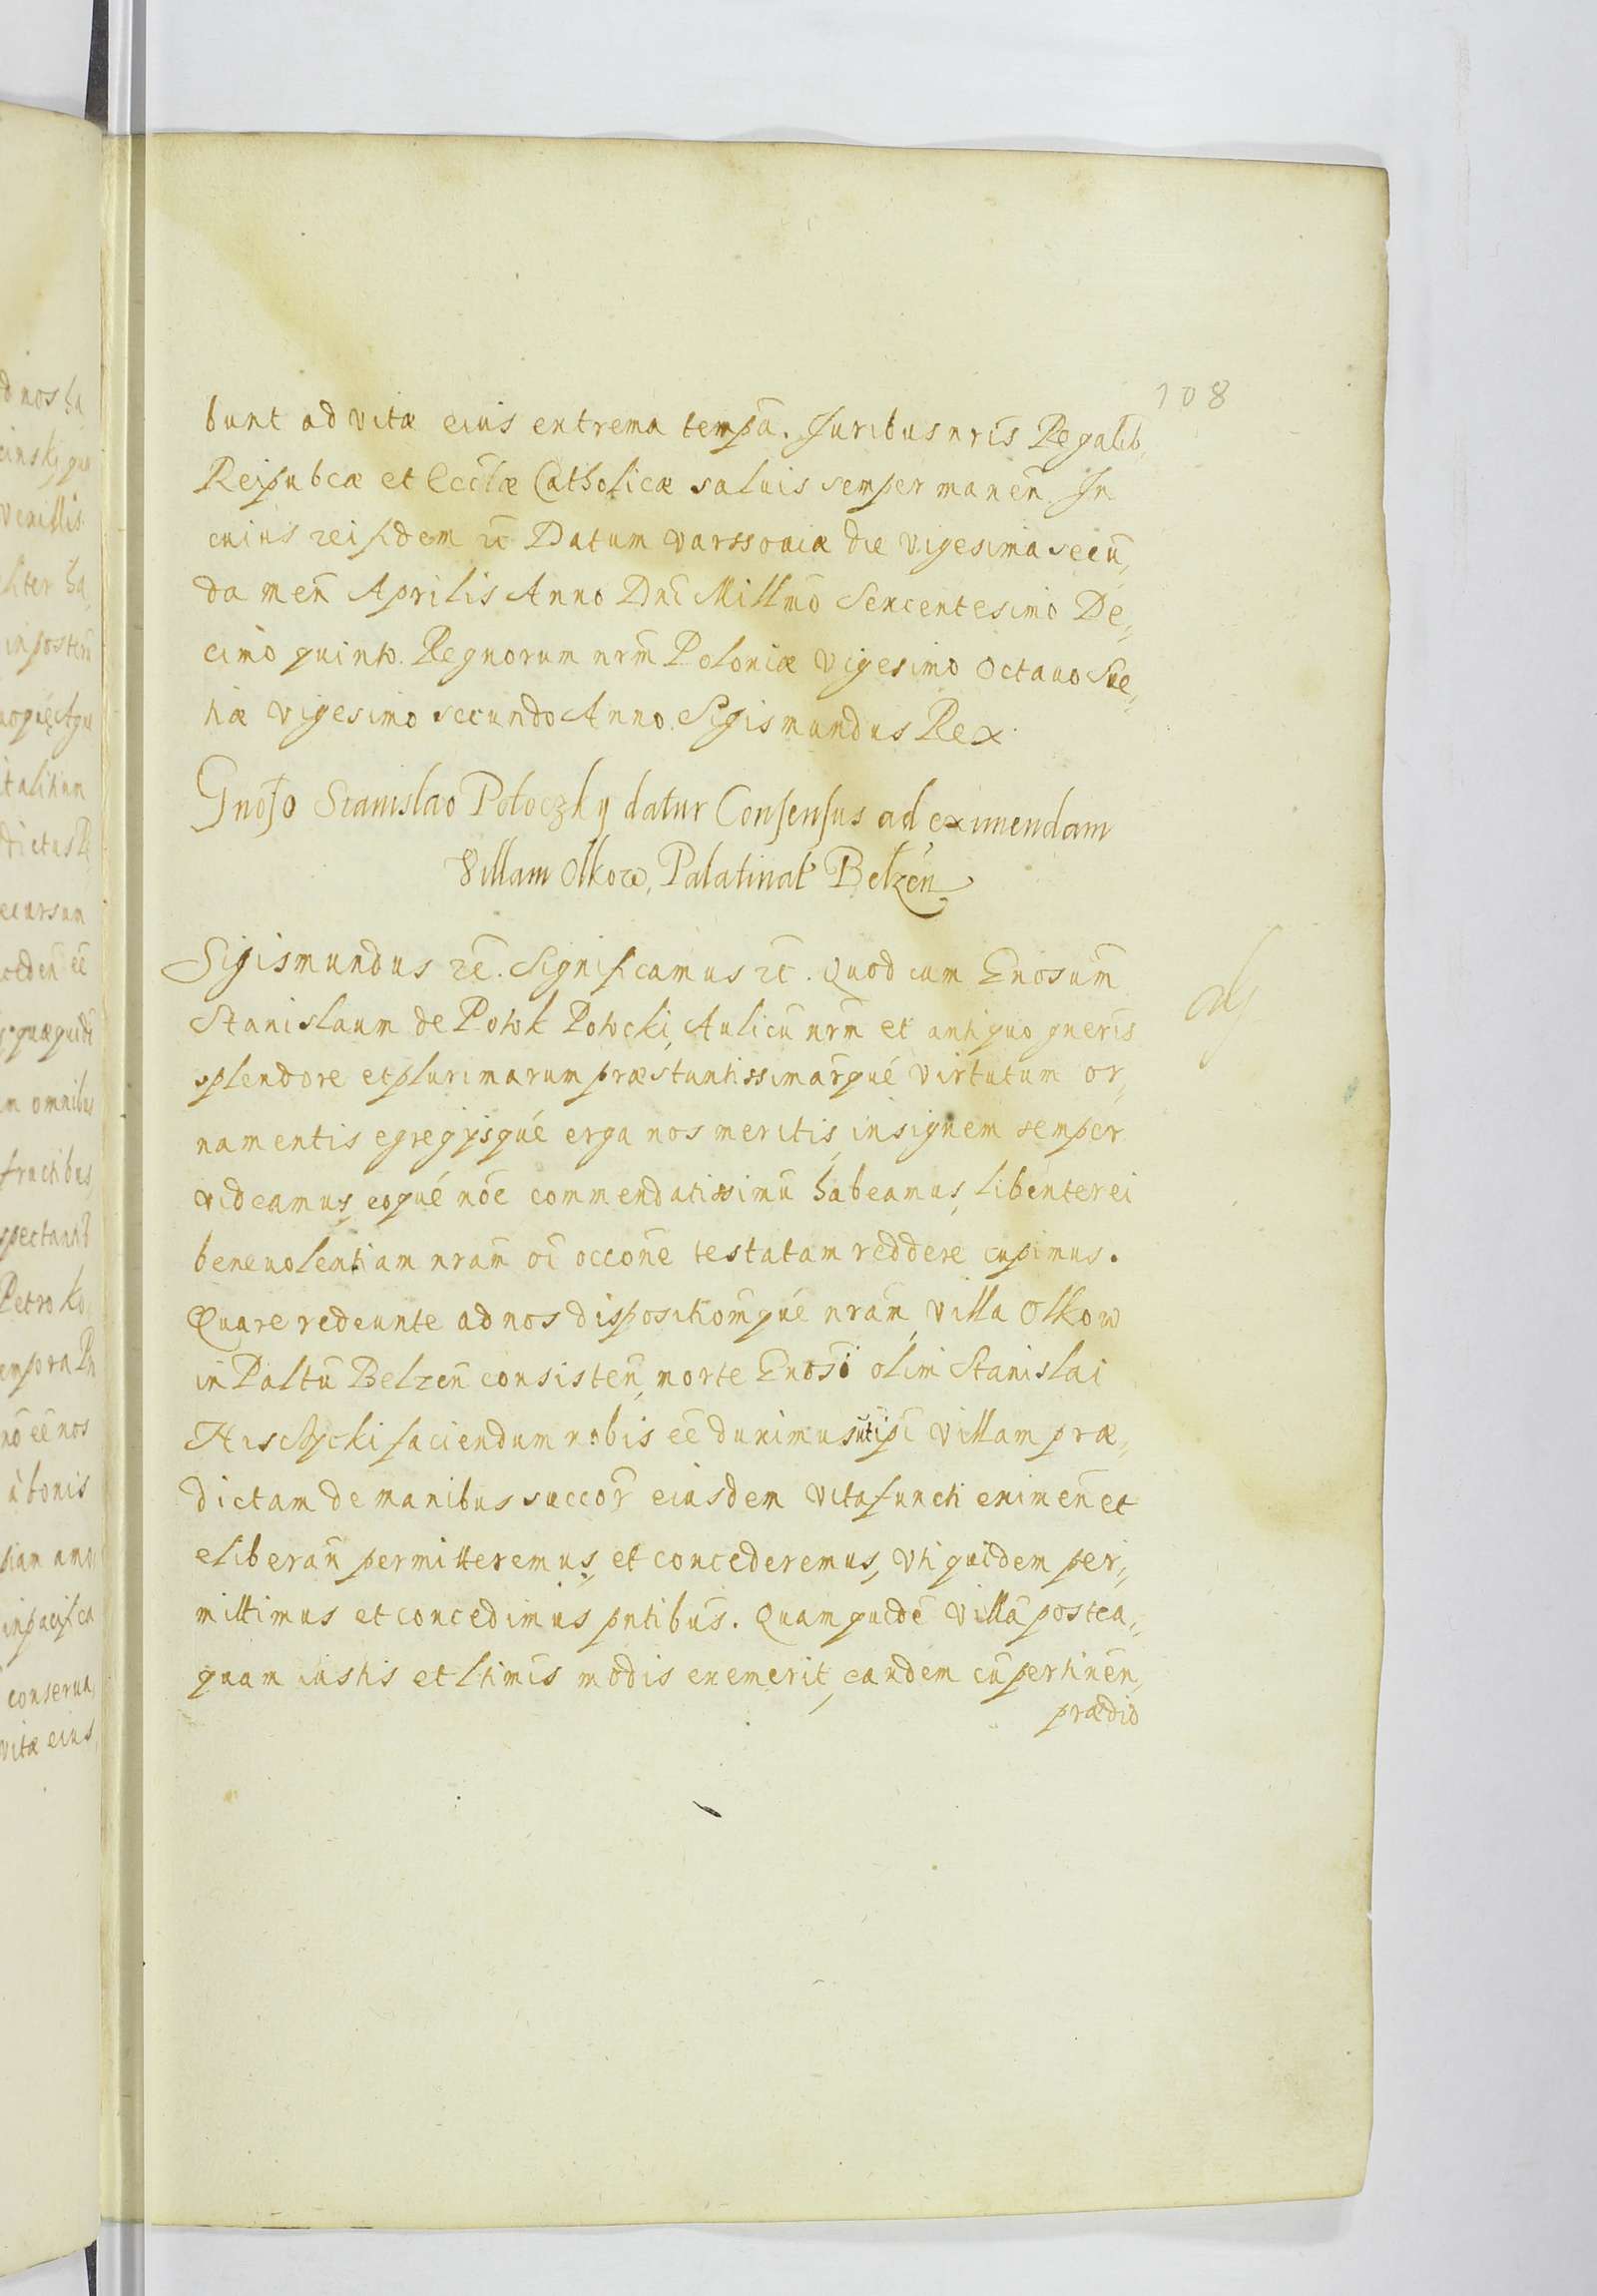 108
bunt ad vitæ eius extrema tempa. Juribus nris̄ Regalib,
Reipubcæ et Eccl̄æ Catholicæ saluis semper manen̄. In
cuius rei fidem ꝛc̄ Datum Varssouiæ die Vigesima secū,,
da men̄ Aprilis Anno Dnī Millmō Sexcentesimo De,,
cimo quinto. Regnorum nrm̄ Poloniæ Vigesimo Octauo Sue,,
tiæ vigesimo secundo Anno. Sigismundus Rex.
Gnōso Stanislao Potoczky datur Consensus ad eximendam
Villam Olkow, Palatinat Belzen̄
Sigismundus ꝛc̄. Significamus ꝛc̄. Quod cum Gnōsum
Stanislaum de Potok Potocki, Aulicū nrm̄ et antiquo gneris̄
splendore et plurimarum præstantissimar̄qué virtutum or,,
namentis egregijsqué erga nos meritis, insignem semper
videamus, eoqué nōe commendatissimū habeamus, libenter ei
beneuolentiam nram̄ oī occone̅ testatam reddere cupimus.
Quare redeunte ad nos dispositiom̄qué nram̄, villa Olkow
in Paltū Belzen̄ consisten̄, morte Gnōsi olim Stanislai
faciendum nobis eē duximus uti ipī villam præ,,
dictam de manibus succor̄ eiusdem vita functi eximen̄ et
eliberan̄ permitteremus, et concederemus, Uti quidem per,,
mittimus et concedimus pntibus̄. Quam quidē villā postea,,
quam iustis et ltimis̄ modis exemerit, eandem cū pertinen̄,
prædio